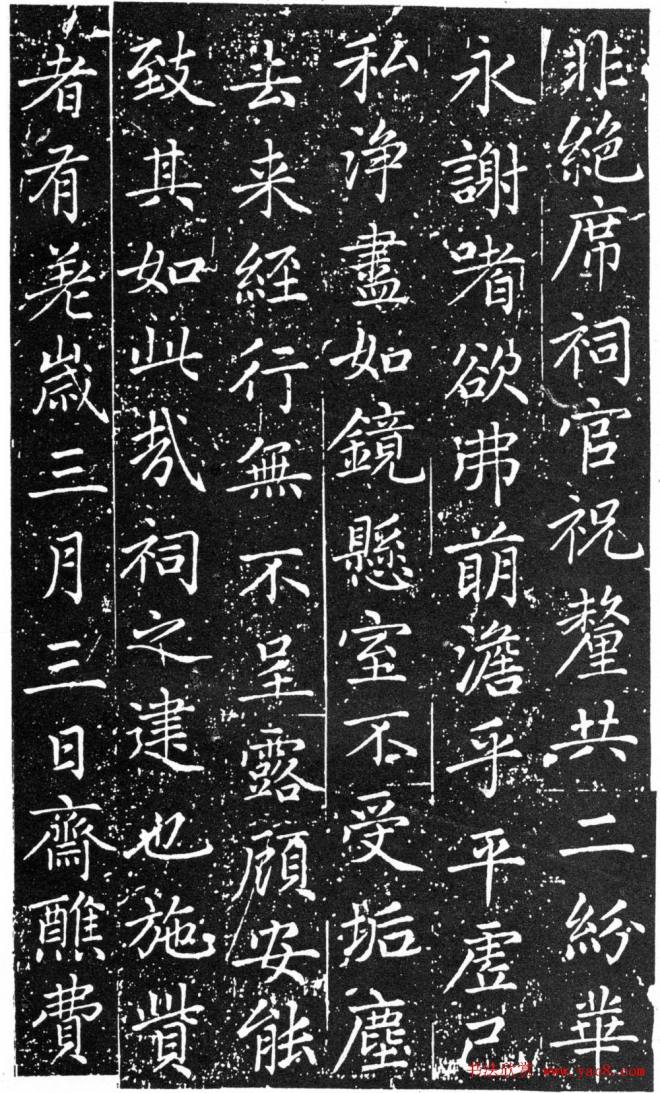 非絶席祠官祝釐共二紛華
永謝嗜欲弗萌澹乎平虚己
私淨盡如鏡懸室不受垢塵
去来經行無不呈露顧安能
致其如此哉祠之建也施貲
者有歲三月三日齋醮費
书法欣赏 www.yac8.com